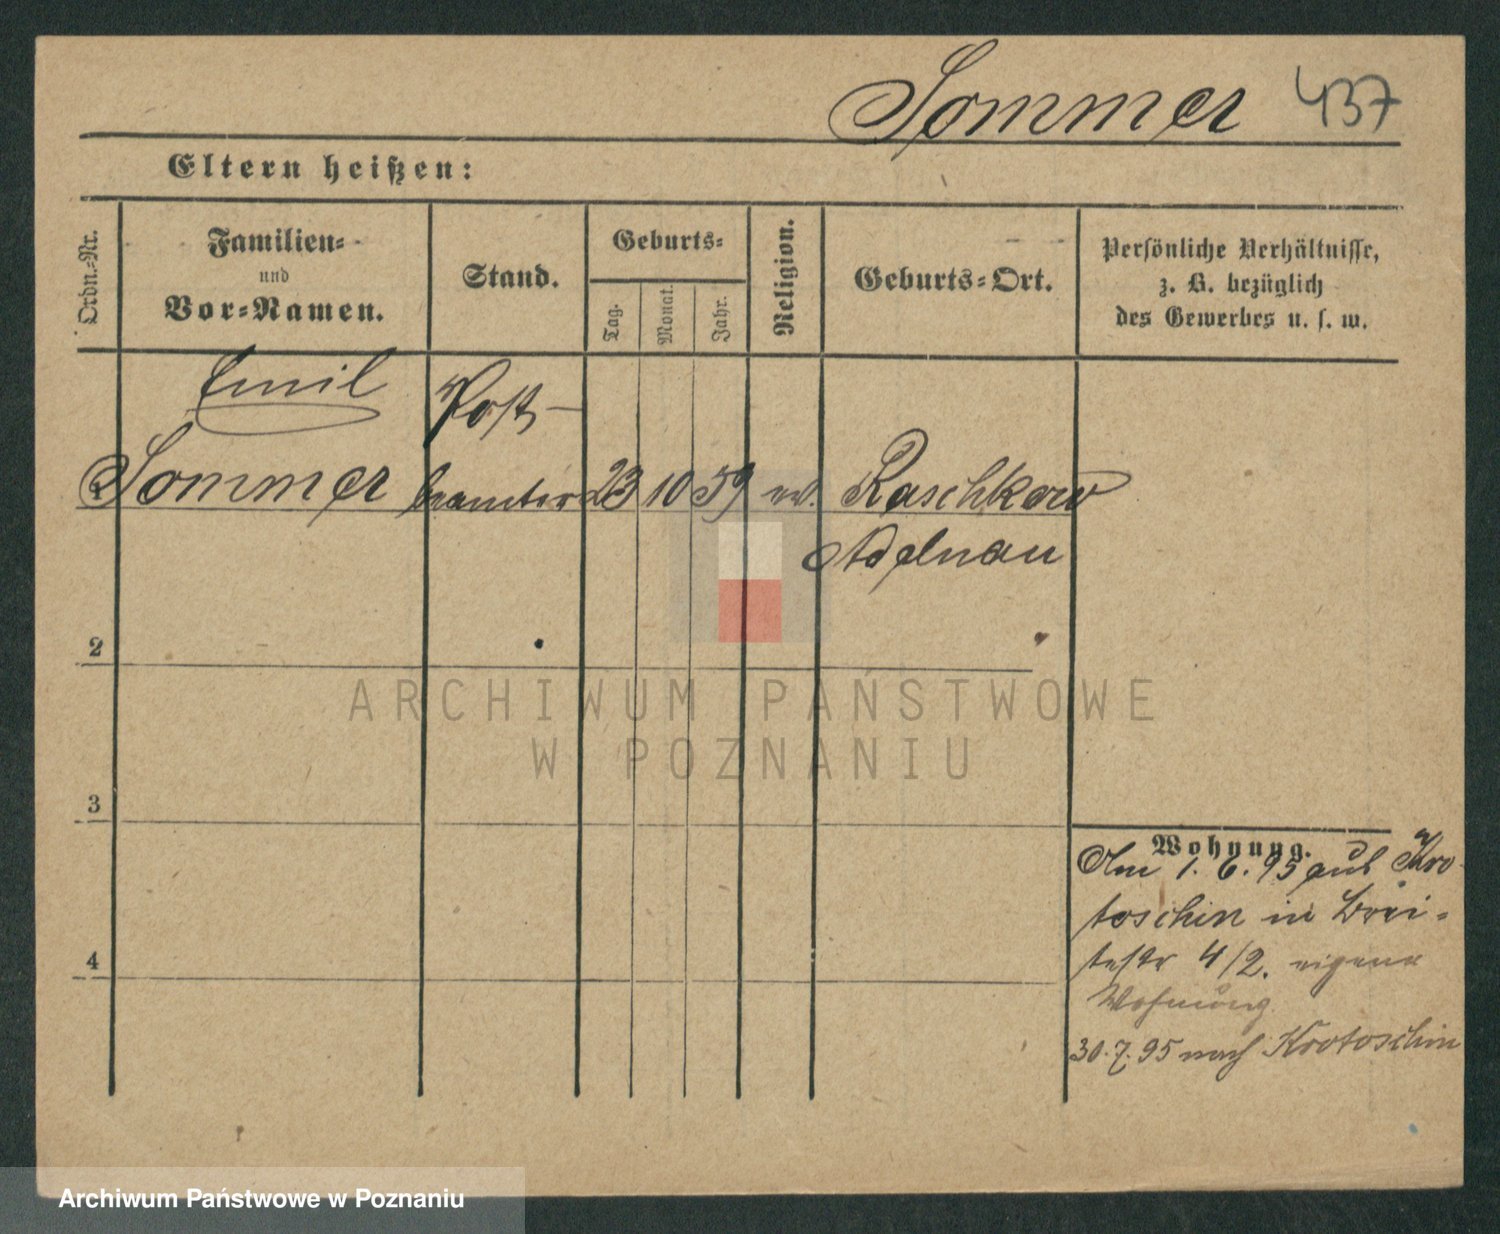 Sommer 437
Eltern heißen:
Ordn.-Nr.
Familien-
und
Vor-Namen.
Stand.
Geburts-
Tag.
Monat.
Jahr.
Religion.
Geburts-Ort.
Persönliche Verhältnisse,
z. B. bezüglich
des Gewerbes u. s. w.
Emil
Post-
1 Sommer beamter 23 10 59 ev. Raschkow
Adelnau
2
3
4
ARCHIWUM PAŃSTWOWE
W POZNANIU
Wohnung.
Am 1. 6. 95 aus Kro-
toschin in Brei-
testr 4/2. eigene
Wohnung
30. 7. 95 nach Krotoschin
Archiwum Państwowe w Poznaniu